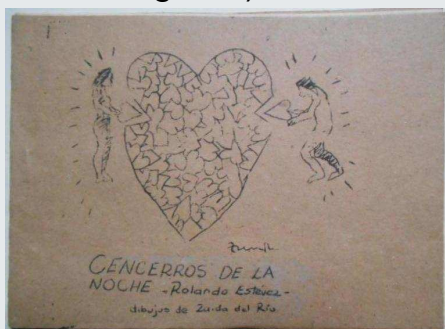 CENCERROS DE LA
NOCHE - Rolando Estévez -
dibujos de Zaida del Río